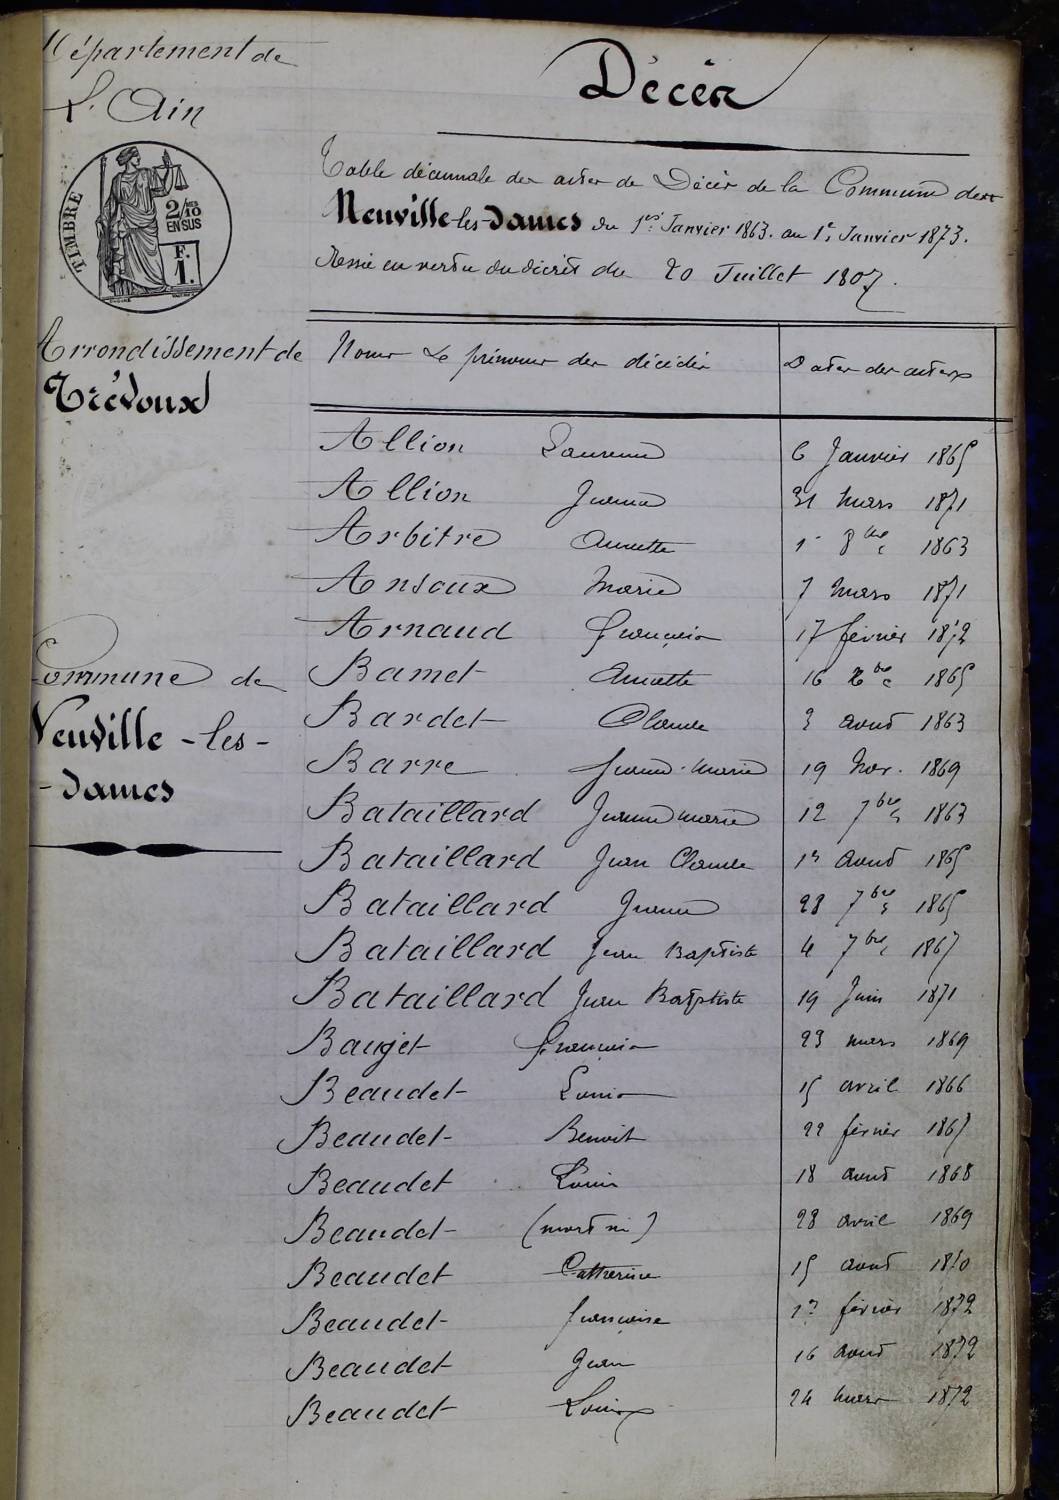 Département de
L'Ain
TIMBRE
2/10
EN SUS
F.
1.
Arrondissement de
Trévoux
Commune de
Neuville-les-
-dames
Décès
Table décennale des actes de Décès de la Commune de
Neuville-les-dames du 1er Janvier 1863. au 1er Janvier 1873.
Dressée en vertu du décret du 20 Juillet 1807.
Noms et prénoms des décédés Dates des actes
Allion Laurence 6 Janvier 1865
Allion Jeanne 31 Mars 1871
Arbitre Annette 1er 8bre 1863
Ansoux Marie 7 Mars 1871
Arnaud François 17 février 1872
Bamet Annette 16 bre 1865
Bardet Claude 3 août 1863
Barre Jeanne-Marie 19 Nov. 1869
Bataillard Jeanne marie 12 7bre 1863
Bataillard Jean Claude août 1865
Bataillard Jeanne 28 7bre 1865
Bataillard Jean Baptiste 4 7bre 1867
Bataillard Jean Baptiste 19 Juin 1871
Bauget François 23 mars 1869
Beaudet Louis 15 avril 1866
Beaudet Benoit 22 février 1867
Beaudet Louis 18 août 1868
Beaudet (mort né) 28 avril 1869
Beaudet Catherine 15 août 1870
Beaudet françoise février 1872
Beaudet Jean 16 août 1872
Beaudet Louis 24 mars 1872